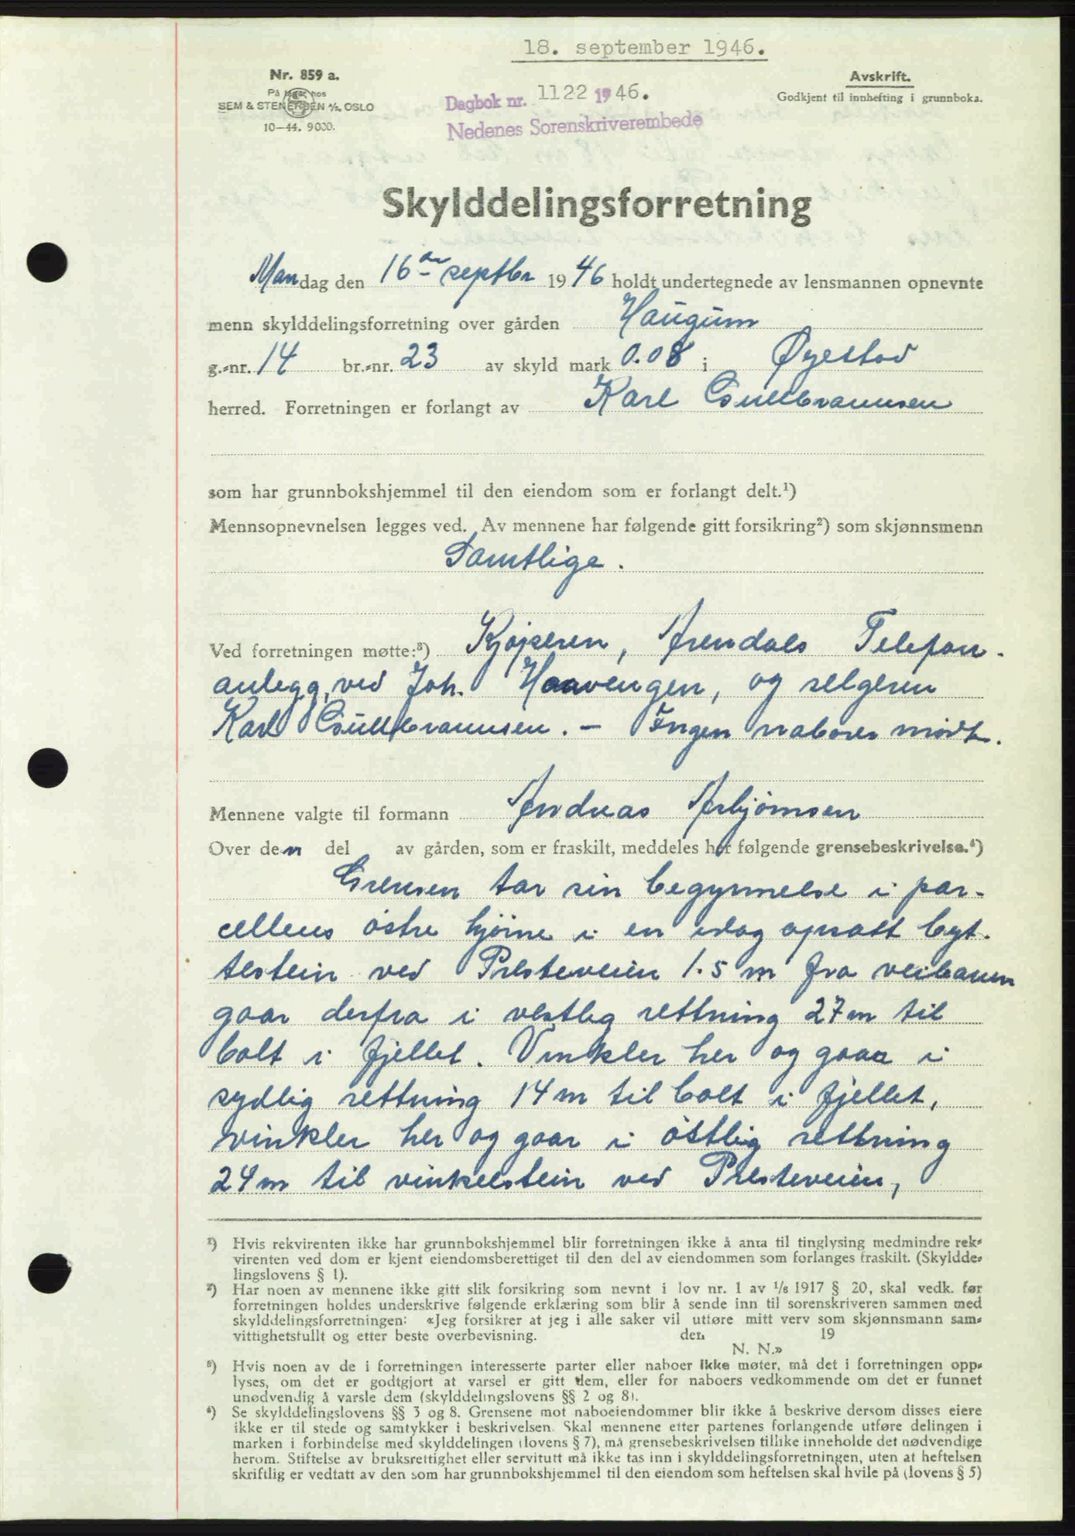 18. september 1946.
Nr. 859 a.
På lager hos
SEM & STENERSEN A/S, OSLO
10-44. 9000.
Dagbok nr. 1122 1946.
Nedenes Sorenskriverembede
Avskrift.
Godkjent til innhefting i grunnboka.
Skylddelingsforretning
Mandag den 16de septbr 1946 holdt undertegnede av lensmannen opnevnte
menn skylddelingsforretning over gården Haugum
g.-nr. 14 br.-nr. 23 av skyld mark 0.08 i Øyestad
herred. Forretningen er forlangt av Karl Gullbrannsen
som har grunnbokshjemmel til den eiendom som er forlangt delt.¹)
Mennsopnevnelsen legges ved. Av mennene har følgende gitt forsikring²) som skjønnsmenn
Samtlige.
Ved forretningen møtte:³) Kjøperen, Arendals Telefon-
anlegg, ved Joh. Haavengen, og selgeren
Karl Gullbrannsen. – Ingen naboer mødt.
Mennene valgte til formann Andreas Asbjørnsen
Over den del av gården, som er fraskilt, meddeles her følgende grensebeskrivelse.⁴)
Grensen tar sin begynnelse i par-
cellens østre hjørne i en idag opsatt byt-
testein ved Presteveien 1.5 m fra veibanen
gaar derfra i vestlig rettning 27 m til
bolt i fjellet. Vinkler her og gaar i
sydlig rettning 14 m til bolt i fjellet,
vinkler her og gaar i østlig rettning
24 m til vinkelstein ved Presteveien,
¹) Hvis rekvirenten ikke har grunnbokshjemmel blir forretningen ikke å anta til tinglysing medmindre rek-
virenten ved dom er kjent eiendomsberettiget til den del av eiendommen som forlanges fraskilt. (Skyldde-
lingslovens § 1).
²) Har noen av mennene ikke gitt slik forsikring som nevnt i lov nr. 1 av 1/6 1917 § 20, skal vedk. før
forretningen holdes underskrive følgende erklæring som blir å sende inn til sorenskriveren sammen med
skylddelingsforretningen: «Jeg forsikrer at jeg i alle saker vil utføre mitt verv som skjønnsmann sam-
vittighetsfullt og etter beste overbevisning. den 19
N. N.»
³) Hvis noen av de i forretningen interesserte parter eller naboer ikke møter, må det i forretningen opp-
lyses, om det er godtgjort at varsel er gitt dem, eller for naboers vedkommende om det er funnet
unødvendig å varsle dem (skylddelingslovens §§ 2 og 8).
⁴) Se skylddelingslovens §§ 3 og 8. Grensene mot naboeiendommer blir ikke å beskrive dersom disses eiere
ikke er til stede og samtykker i beskrivelsen. Skal mennene etter partenes forlangende utføre delingen i
marken i forbindelse med skylddelingen (lovens § 7), må grensebeskrivelsen tillike inneholde det nødvendige
herom. Stiftelse av bruksrettighet eller servitutt må ikke tas inn i skylddelingsforretningen, uten at heftelsen
skriftlig er vedtatt av den som har grunnbokshjemmel til den eiendom som heftelsen skal hvile på (lovens § 5)